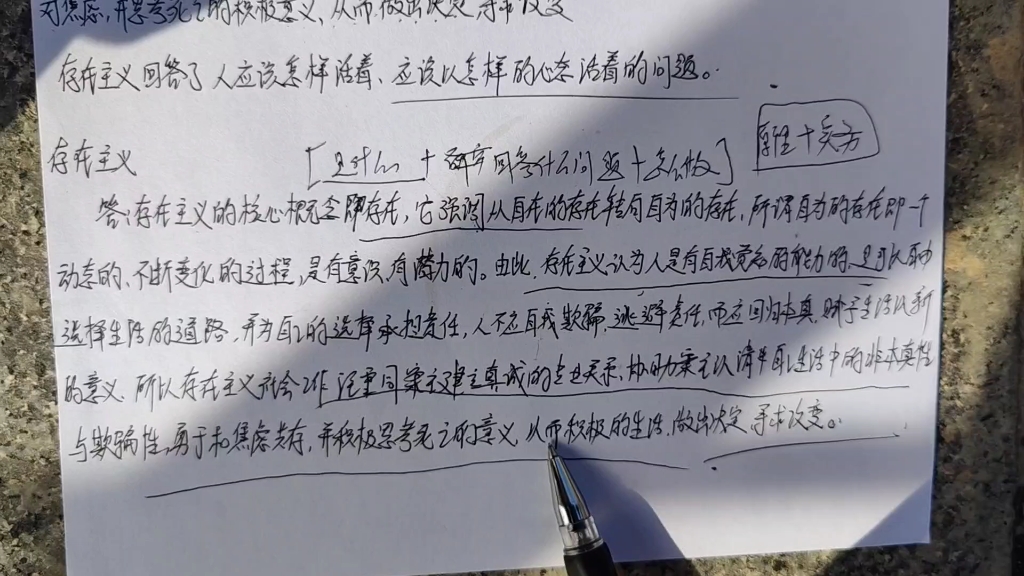 对焦虑,并思考死亡的积极意义、从而做出决定寻求改变
存在主义回答了人应该怎样活着、应该以怎样的心态活着的问题。
存在主义 [是什么+研究回答什么问题+怎么做] 原理+实务
答:存在主义的核心概念即存在,它强调从自在的存在转向自为的存在,所谓自为的存在即一个
动态的、不断变化的过程,是有意识、有潜力的。由此,存在主义认为人是有自我觉察的能力的、是可以自由
选择生活的道路,并为自己的选择承担责任,人不应自我欺骗、逃避责任,而应回归本真,赋予生活以新
的意义。所以存在主义社会工作注重同案主建立真诚的专业关系、协助案主认清平日生活中的非本真性
与欺骗性,勇于和焦虑共存,并积极思考死亡的意义,从而积极的生活,做出决定,寻求改变。